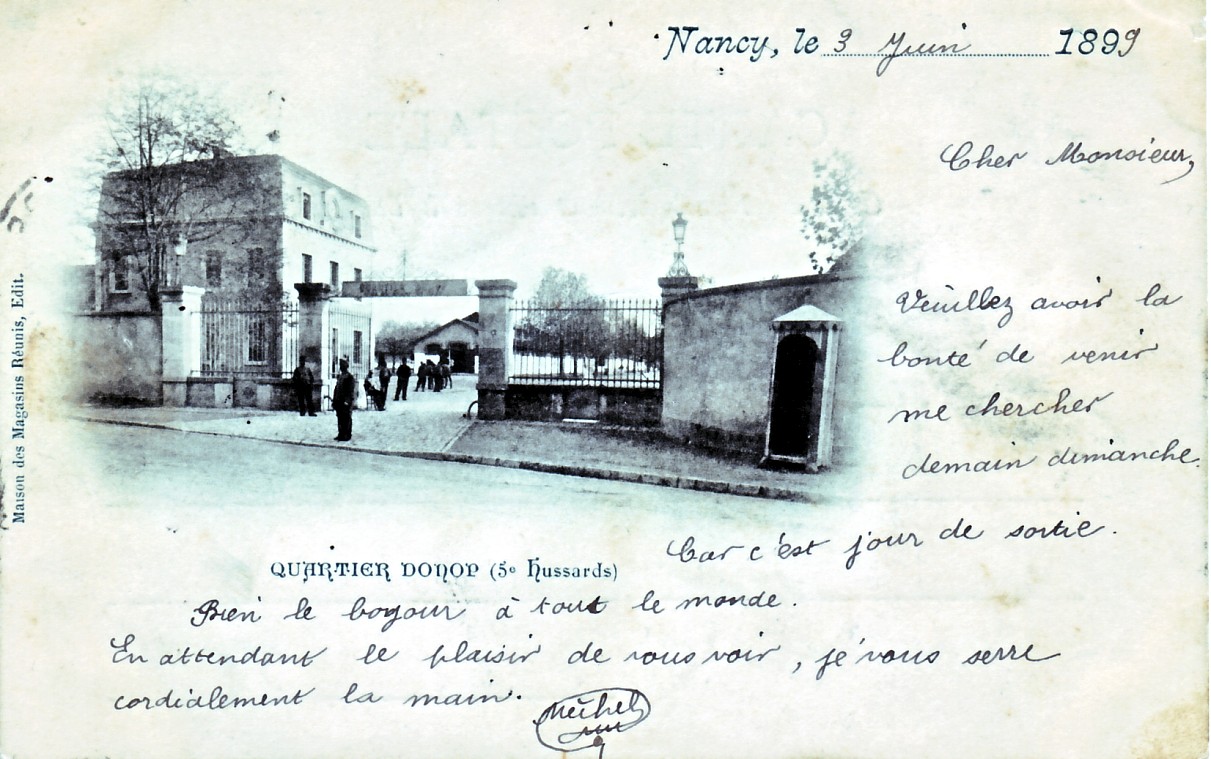 Nancy, le 3 Juin 1899
Cher Monsieur,
Veuillez avoir la
bonté de venir
me chercher
demain dimanche.
Car c'est jour de sortie.
Maison des Magasins Réunis, Edit.
QUARTIER DONOP (5e Hussards)
Bien le bojour à tout le monde.
En attendant le plaisir de vous voir, je vous serre
cordialement la main.